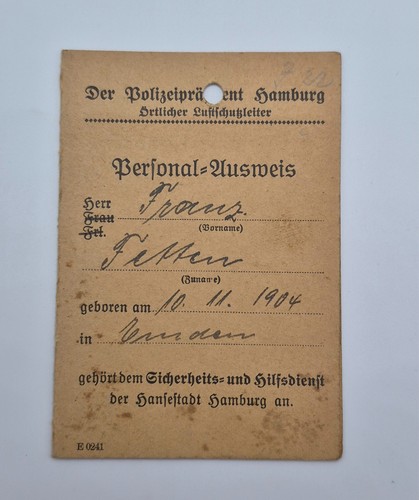 Der Polizeipräsident Hamburg
Örtlicher Luftschutzleiter
Personal-Ausweis
Herr
Frau
Frl.
Franz.
(Vorname)
Fetten
(Zuname)
geboren am 10. 11. 1904
in Emden
gehört dem Sicherheits- und Hilfsdienst
der Hansestadt Hamburg an.
E 0241